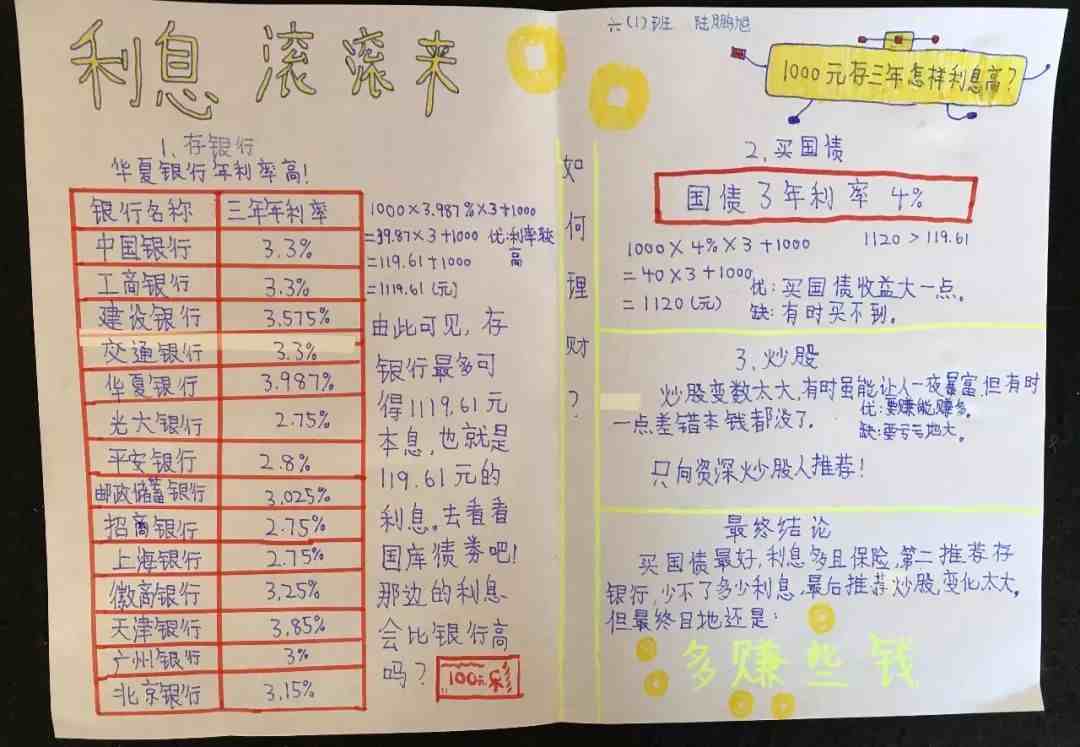 利息滚滚来
1、存银行
华夏银行年利率高!
银行名称 三年年利率
中国银行 3.3%
工商银行 3.3%
建设银行 3.575%
交通银行 3.3%
华夏银行 3.987%
光大银行 2.75%
平安银行 2.8%
邮政储蓄银行 3.025%
招商银行 2.75%
上海银行 2.75%
徽商银行 3.25%
天津银行 3.85%
广州银行 3%
北京银行 3.15%
1000×3.987%×3+1000
=39.87×3+1000
=119.61+1000
=1119.61(元)
优:利率较
高
由此可见,存
银行最多可
得1119.61元
本息,也就是
119.61元的
利息。去看看
国库债券吧!
那边的利息
会比银行高
吗?
100元
如何理财?
六(1)班 陆鹏旭
1000元存三年怎样利息高?
2、买国债
国债3年利率 4%
1000×4%×3+1000
=40×3+1000
=1120(元)
1120>119.61
优:买国债收益大一点。
缺:有时买不到。
3、炒股
炒股变数太大,有时虽能让人一夜暴富,但有时
一点差错本钱都没了。
优:要赚能赚多。
缺:要亏亏地大。
只向资深炒股人推荐!
最终结论
买国债最好,利息多且保险,第二推荐存
银行,少不了多少利息,最后推荐炒股,变化太大。
但最终目地还是:
多赚些钱